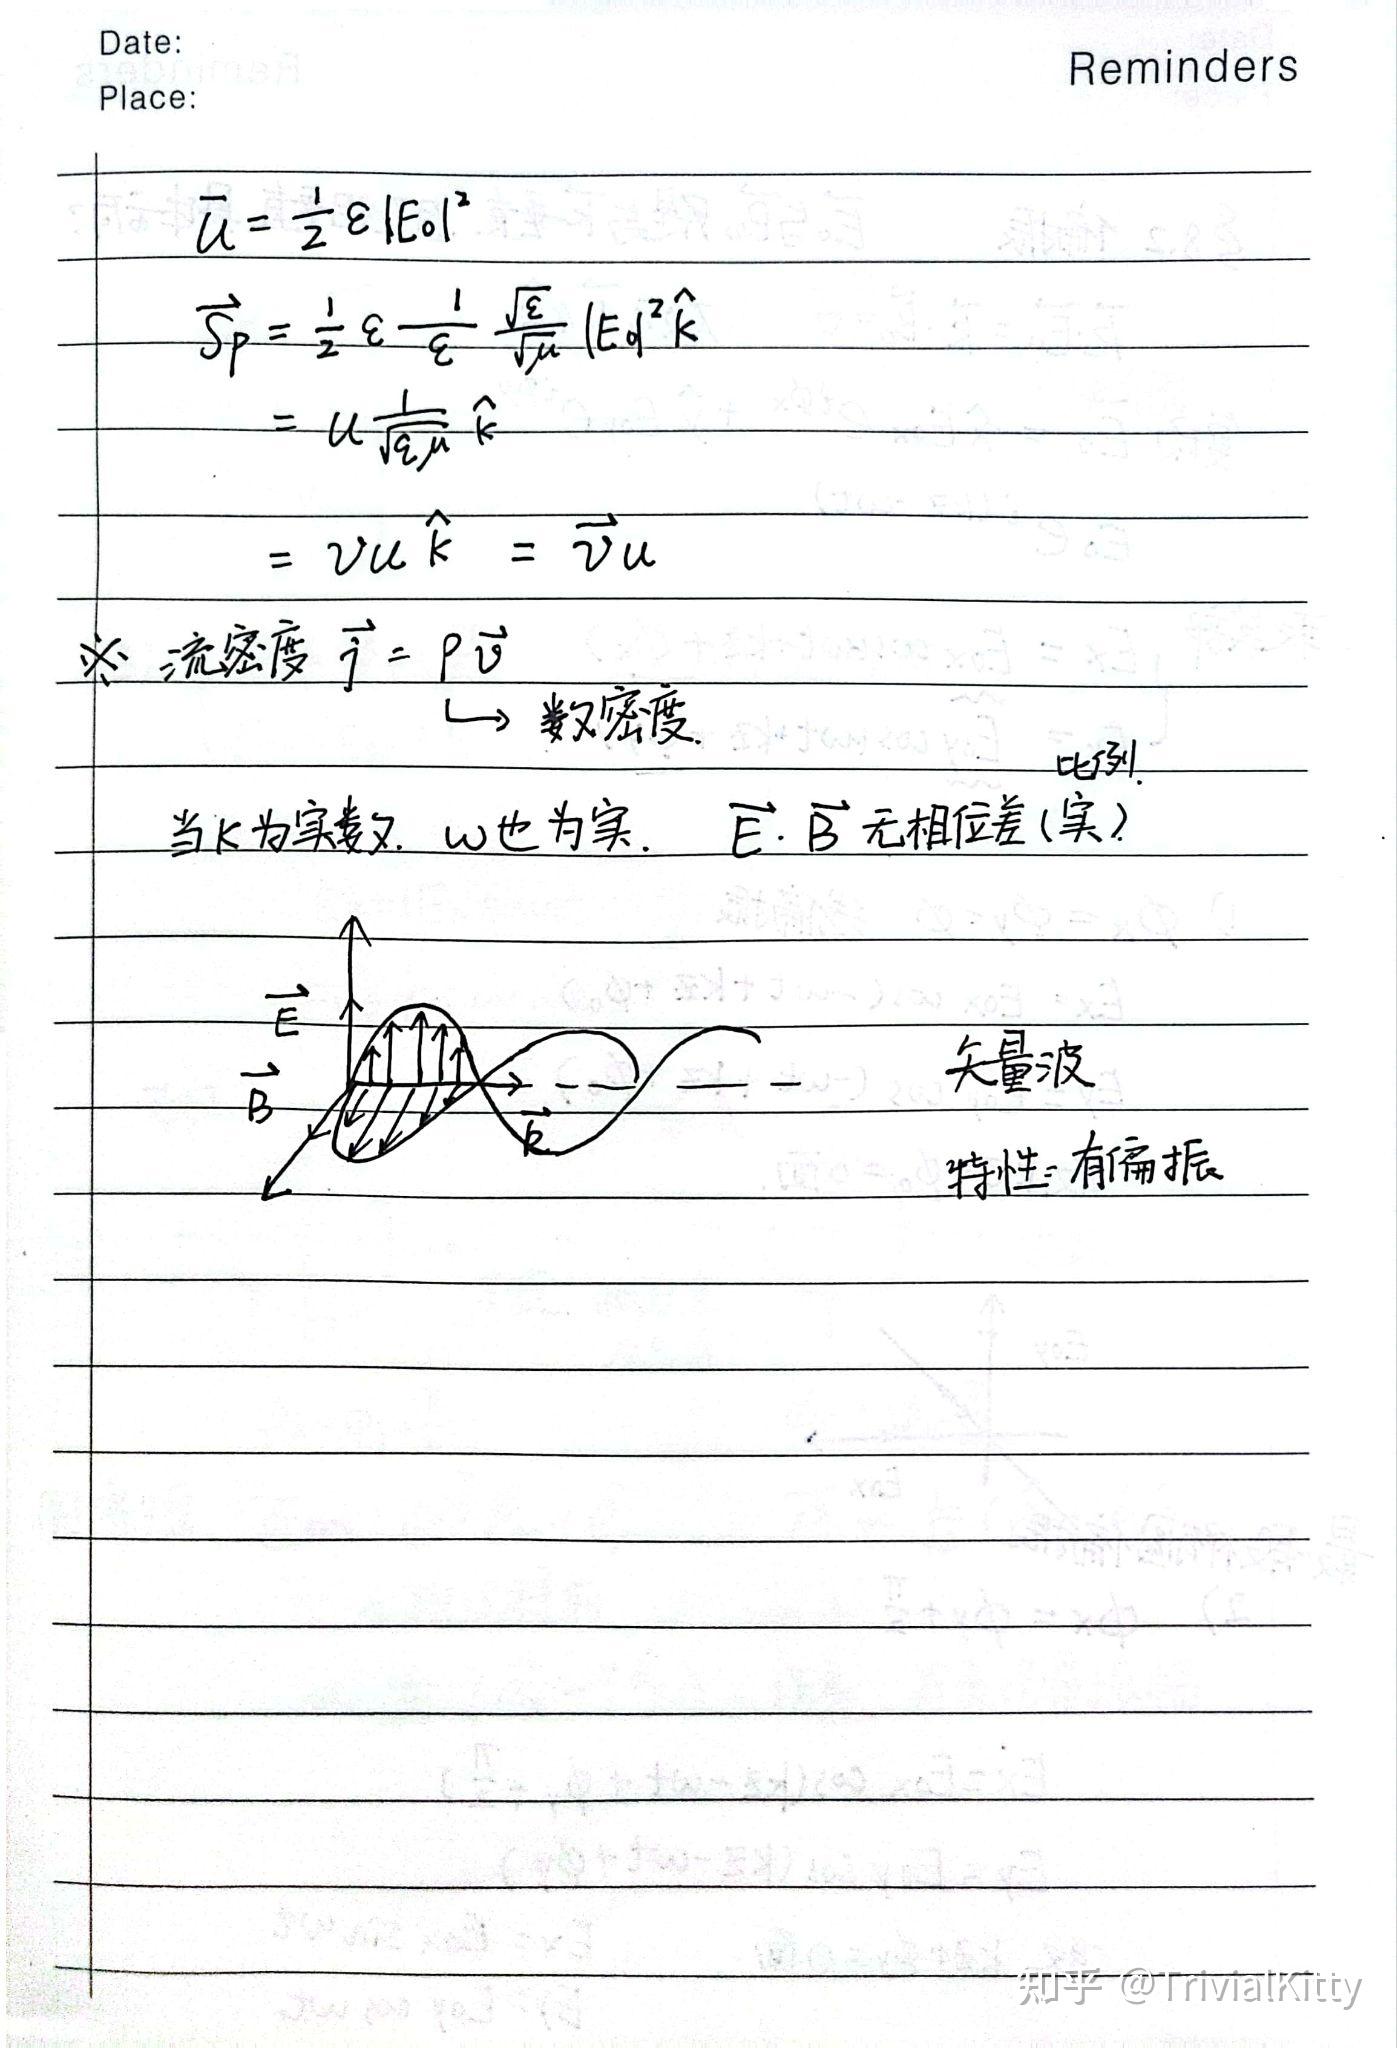 Date:
Place:
Reminders
ū = 1/2 ε|E₀|²
S⃗p = 1/2 ε 1/ε √ε/√μ |E₀|² k̂
= u 1/√εμ k̂
= vu k̂ = v⃗u
※ 流密度 j⃗ = ρv⃗
↳ 数密度.
比例.
当k为实数. ω也为实. E⃗. B⃗ 无相位差(实)
E⃗
B⃗
k⃗
矢量波
特性: 有偏振
知乎 @TrivialKitty